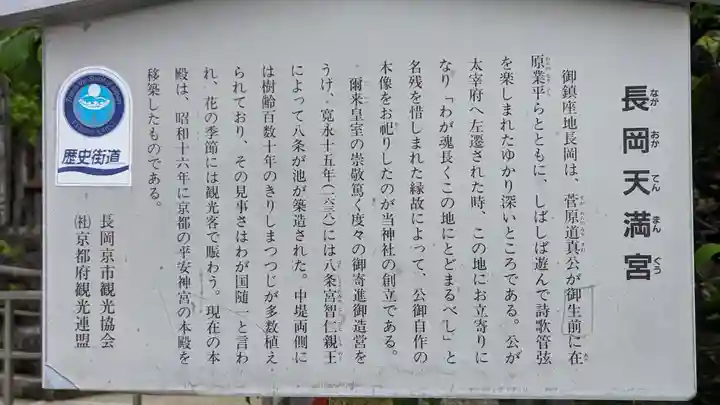 長岡天満宮
なが おか てん まん ぐう
御鎮座地長岡は、菅原道真公が御生前に在
原業平らとともに、しばしば遊んで詩歌管弦
を楽しまれたゆかり深いところである。公が
太宰府へ左遷された時、この地にお立寄りに
なり「わが魂長くこの地にとどまるべし」と
名残を惜しまれた縁故によって、公御自作の
木像をお祀りしたのが当神社の創立である。
爾来皇室の崇敬篤く度々の御寄進御造営を
うけ、寛永十五年(一六三八)には八条宮智仁親王
によって八条が池が築造された。中堤両側に
は樹齢百数十年のきりしまつつじが多数植え
られており、その見事さはわが国随一と言わ
れ、花の季節には観光客で賑わう。現在の本
殿は、昭和十六年に京都の平安神宮の本殿を
移築したものである。
長岡京市観光協会
㈳京都府観光連盟
歴史街道